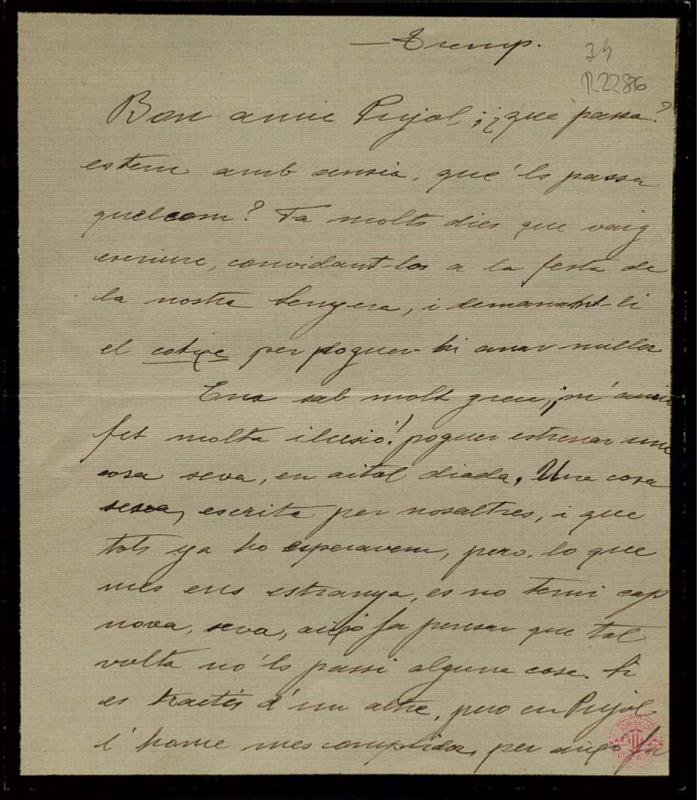 — Tremp.
34
R.2286
Bon amic Pujol; ¿que passa?
estem amb ansia, que 'ls passa
quelcom? Fa molts dies que vaig
escriure, convidant-los a la festa de
la nostra Senyera, i demanant-li
el cotxe per poguer-hi anar millor
Ens sab molt greu, ¡m' auria
fet molta ilusió! poguer estrenar una
cosa seva, en aital diada. Una cosa
seva, escrita per nosaltres, i que
tots ya ho esperavem, pero, lo que
mes ens estranya, es no tenir cap
nova, seva, aixó fa pensar que tal
volta no 'ls passi alguna cosa. Si
es tractés d'un altre, pero en Pujol
l'home mes complidor, per aixó fa